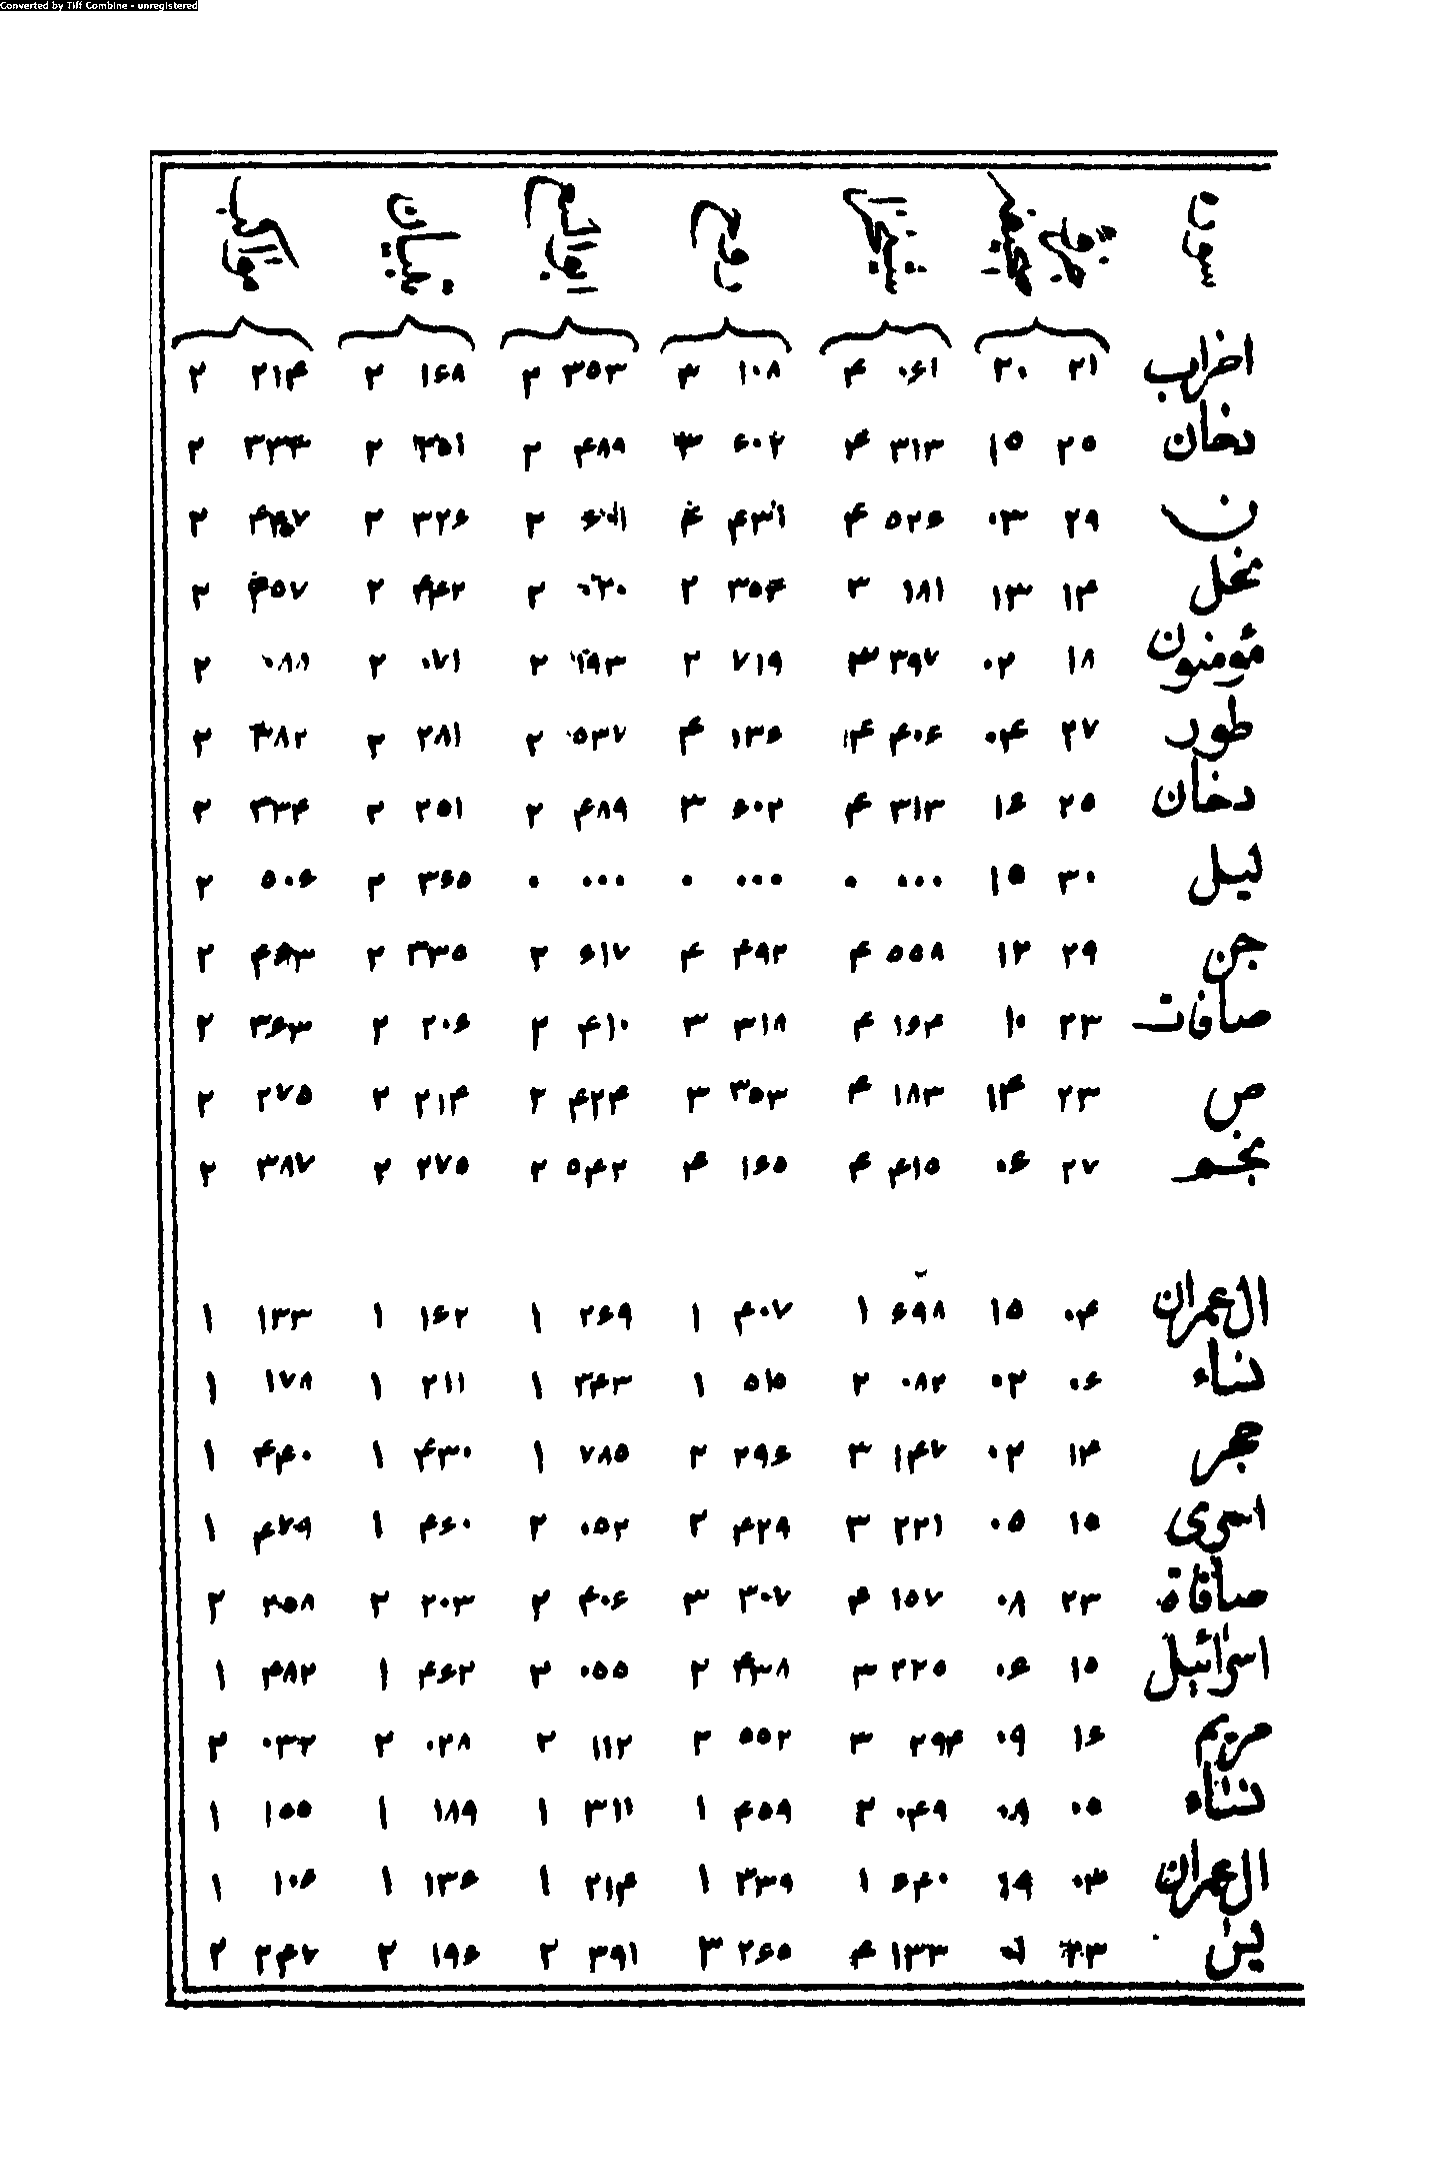 Converted by Tiff Combine - unregistered
سوره
احزاب ۲۱ ۲۰ ۰۶۱ ۴ ۱۰۸ ۳ ۳۵۳ ۲ ۱۶۸ ۲ ۲۱۴ ۲
دخان ۲۵ ۱۵ ۳۱۳ ۴ ۶۰۲ ۳ ۴۸۹ ۲ ۲ ۲
ن ۲۹ ۰۳ ۵۲۶ ۴ ۴۳۱ ۴ ۲ ۳۲۶ ۲ ۲
نحل ۱۴ ۱۳ ۱۸۱ ۳ ۳۵۴ ۲ ۲ ۲ ۲
مؤمنون ۱۸ ۰۲ ۳۹۷ ۳ ۷۱۹ ۲ ۲ ۰۷۱ ۲ ۰۸۸ ۲
طور ۲۷ ۰۴ ۴۰۶ ۴ ۱۳۶ ۴ ۵۳۷ ۲ ۲۸۱ ۲ ۳۸۲ ۲
دخان ۲۵ ۱۶ ۳۱۳ ۴ ۶۰۲ ۳ ۴۸۹ ۲ ۲۵۱ ۲ ۳۳۴ ۲
لیل ۳۰ ۱۵ ۰۰۰ ۰ ۰۰۰ ۰ ۰۰۰ ۰ ۳۶۵ ۲ ۵۰۶ ۲
جن ۲۹ ۱۲ ۵۵۸ ۴ ۴۹۲ ۴ ۶۱۷ ۲ ۳۳۵ ۲ ۴۶۳ ۲
صافات ۲۳ ۱۰ ۱۶۴ ۴ ۳۱۸ ۳ ۴۱۰ ۲ ۲۰۶ ۲ ۳۶۳ ۲
ص ۲۳ ۱۴ ۱۸۳ ۴ ۳۵۳ ۳ ۴۲۴ ۲ ۲۱۴ ۲ ۲۷۵ ۲
نجم ۲۷ ۰۶ ۴۱۵ ۴ ۱۶۵ ۴ ۵۴۲ ۲ ۲۷۵ ۲ ۳۸۷ ۲
ال عمران ۰۴ ۱۵ ۶۹۸ ۱ ۴۰۷ ۱ ۲۶۹ ۱ ۱۶۲ ۱ ۱۳۳ ۱
نساء ۰۶ ۰۲ ۰۸۲ ۲ ۵۱۵ ۱ ۳۴۳ ۱ ۲۱۱ ۱ ۱۷۸ ۱
حجر ۱۴ ۰۲ ۱۴۷ ۳ ۲۹۶ ۲ ۷۸۵ ۱ ۴۳۰ ۱ ۴۴۰ ۱
اسری ۱۵ ۰۵ ۲۲۱ ۳ ۴۲۹ ۲ ۰۵۲ ۲ ۴۶۰ ۱ ۴۷۹ ۱
صافاة ۲۳ ۰۸ ۱۵۷ ۴ ۳۰۷ ۳ ۴۰۶ ۲ ۲۰۳ ۲ ۳۵۸ ۲
اسرائیل ۱۵ ۰۶ ۲۲۵ ۳ ۴۳۸ ۲ ۰۵۵ ۲ ۴۶۲ ۱ ۴۸۲ ۱
مریم ۱۶ ۰۹ ۲۹۴ ۳ ۵۵۲ ۲ ۱۱۲ ۲ ۰۲۸ ۲ ۰۳۲ ۲
نساء ۰۵ ۰۸ ۰۴۹ ۲ ۴۵۹ ۱ ۳۱۱ ۱ ۱۸۹ ۱ ۱۵۵ ۱
ال عمران ۰۴ ۱۹ ۶۴۰ ۱ ۳۳۹ ۱ ۲۱۴ ۱ ۱۳۶ ۱ ۱۰۶ ۱
یس ۱۳۳ ۴ ۲۶۵ ۳ ۳۹۱ ۲ ۱۹۶ ۲ ۲۴۷ ۲